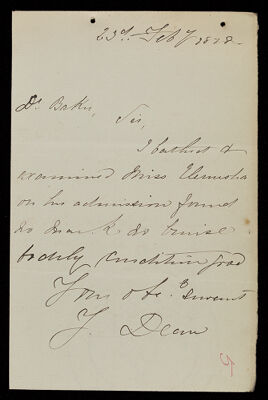 23d. Feby 1878.
Dr Baker,
Sir,
I bathed &
examined Miss
on his admission found
no mark do bruise
bodily condition good
Your obt. Servant
J. Dean
5